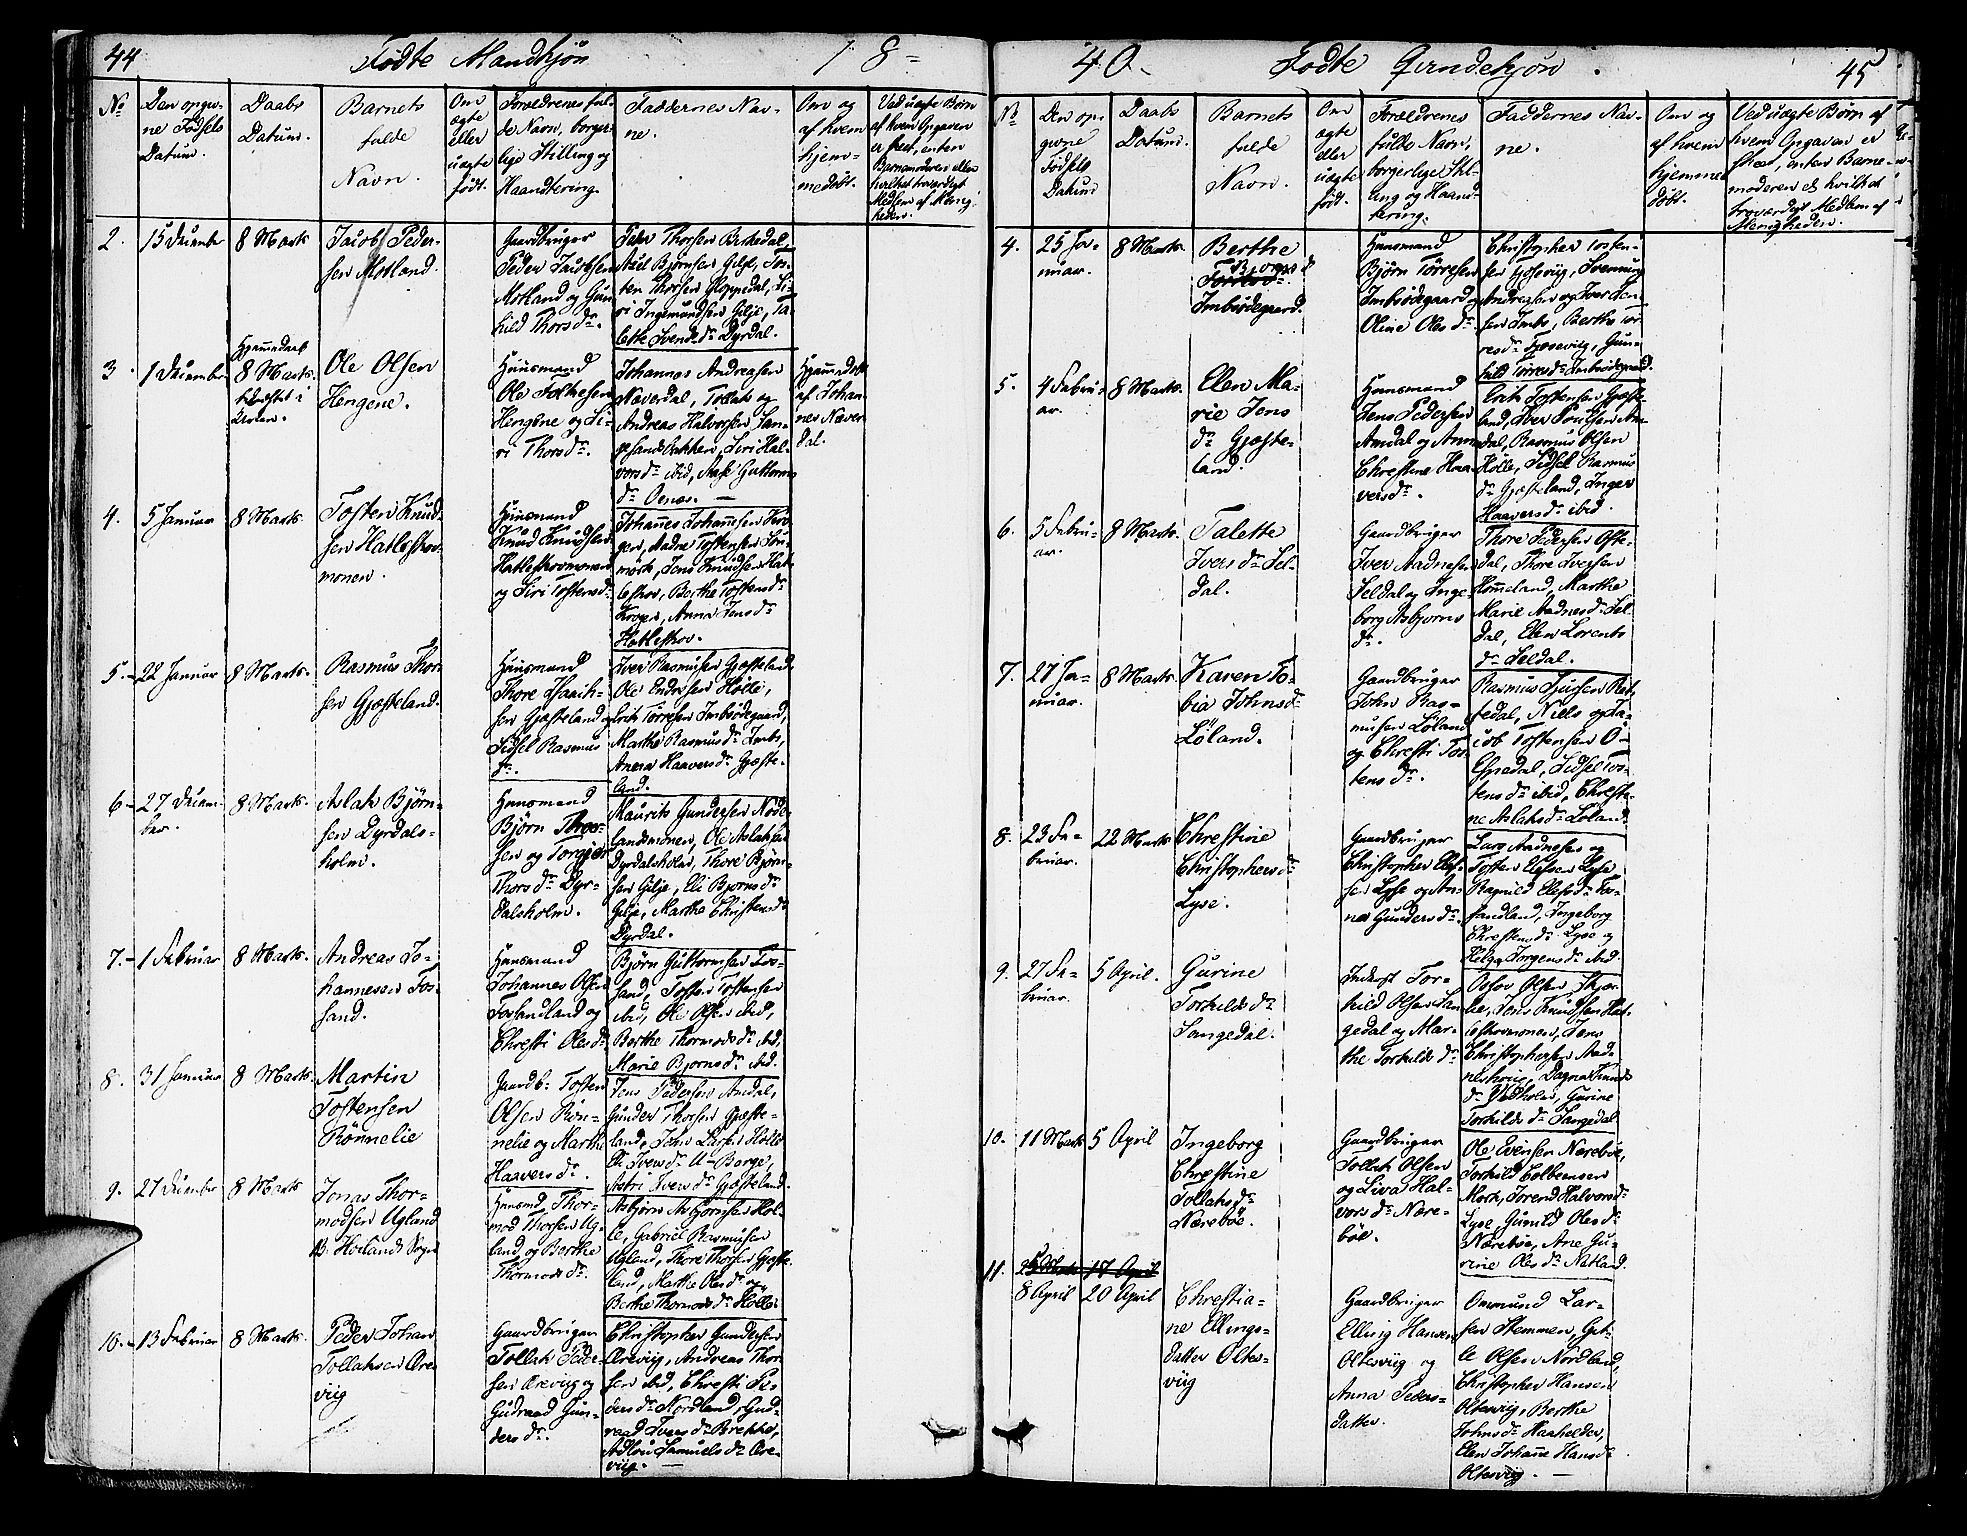 44 Fødte Mandkjøn 18-
No
Den opgivne Fødsels Datum.
Daabs Datum.
Barnets fulde Navn.
Om ægte eller uægte født.
Forældrenes fulde Navn, borgerlige Stilling og Haandtering.
Faddernes Navne.
Om og af hvem hjemmedøbt.
Ved uægte Børn af hvem Opgaven er skeet, enten Barnemoderen eller hvilket troværdigt Medlem af Menigheden.
2. 15 December
8 Marts
Jacob Pedersen Motland.
Gaardbruger
Peder Jacobsen
Motland og Gunhild Thorsdr.
Peder Thorsen Birkedal,
Axel Bjørnsen Gilje, Tosten Thorsen Gloppedal, Siri Ingemundsen Gilje, Talette Svendsdr. Dyrdal.
3. 1 December
Hjemmedaab
8 Marts
Ole Olsen
Hengene.
Huusmand
Ole Tolkesen
Hengene og Siri Thorsdr.
Johannes Andreasen
Næverdal, Tollak og
Andreas Halvorsen Langesandsbakken, Siri Halvorsdr. ibid, Aase Guttorms
dr. Oenæs. —
Hjemmedøbt
af Johannes Næverdal.
4. 5 Januar
8 Marts
Tosten Knudsen Hatleskovmonen.
Huusmand
Knud Knudsen
Hatleskovmonen
og Siri Tostensdr.
Johannes Johannesen Krogen, Andre Tostensen Sønmørk, Jens Knudsen Hatleskov, Berthe Tostensdr.
Krogen, Anna Jensdr.
Hatleskov.
5.- 22 Januar
8 Marts.
Rasmus Thorsen Gjæsteland.
Huusmand
Thore
Gjæsteland og
Sidsel Rasmus
dr.
Iver Rasmusen Gjæsteland.
Ole Endresen Hølle,
Erik Tørresen Imbsødegaard,
Marthe Rasmusdr. Imbs,
Anna Haaversdr. Gjæsteland.
6- 27 December.
8 Marts.
Aslak Bjørnsen Dyrdalsholm.
Huusmand
Bjørn Thorsen og Torgjer
Thorsdr. Dyrdalsholm.
Maurits Gundersen Nødelandsmonen, Ole Aslaksen
Dyrdalsholm, Thore Bjørnsen Gilje, Eli Bjørnsdr.
Gilje, Marthe Christensdr.
Dyrdal.
7.- 1 Februar
8 Marts.
Andreas Johannesen Fossand.
Huusmand
Johannes Olsen
Foslandland og
Christi Olesdr.
Bjørn Guttormsen Fossand, Tosten Tostensen
ibid, Ole Olsen ibid,
Berthe Thormodsdr. ibid,
Marie Bjørnsdr. ibid.
8. 31 Januar
8 Marts.
Martin
Tostensen
Rønnelie
Gaardb. Tosten
Olsen Rønnelie og Marthe
Haaversdr.
Jens Pedersen Amdal,
Gunder Thorsen Gjæsteland, John Larsen Hølle
Eli Iversdr. U-Berge,
Astri Iversdr. Gjæsteland.
9. 27 December
8 Marts
Jonas Thormodsen Ugland
Høilands Sogn
Huusmd. Thormod Thorsen Ugland og Berthe
Thormodsdr.
Asbjørn Asbjørnsen Hølle, Gabriel Rasmusen
Ugland, Thore Thorsen Gjæsteland, Marthe Olesdr. og
Berthe Thormodsdr. Hølle.
10.- 13 Februar
8 Marts.
Peder Johan
Tollaksen Ørevig
Gaardbruger
Tollak Pedersen Ørevig og
Gudraad Gundersdr.
Christopher Gundersen
Ørevig, Andreas Thorsen ibid, Christi Pedersdr. Nordland, Gudraad Iversdr. Brekke,
Adlou Samuelsdr. Ørevig. —
40. Fødte Qvindekjøn. 45
No
Den opgivne Fødsels Datum
Daabs Datum.
Barnets fulde Navn.
Om ægte eller uægte født.
Forældrenes fulde Navn, borgerlige Stilling og Haandtering.
Faddernes Navne.
Om og af hvem hjemmedøbt.
Ved uægte Børn af hvem Opgaven er skeed, enten Barnemoderen el. hvilket troværdigt Medlem af Menigheden.
4. 25 Januar.
8 Marts.
Berthe
Bjørnsd
Imbsødegaard.
Huusmand
Bjørn Tørresen
Imbsødegaard og
Oline Olesdr.
Christopher Tostensen Fossevig, Svennung
Andreasen og Iver Jensen Imbs, Berthe Tørresdr. Fossevig, Gunhild Tørresdr. Imbsødegaard.
5. 4 Februar.
8 Marts.
Elen Marie Jens
dr. Gjæsteland.
Huusmand
Jens Pedersen
Amdal og Anna
Christine Haaversdr.
Erik Tostensen Gjæsteland, Iver Poulsen Amdal, Rasmus Olsen
Hølle, Sidsel Rasmus
dr. Gjæsteland, Inger
Haaversdr. ibid.
6. 5 Februar.
8 Marts.
Talette
Iversdr. Seldal.
Gaardbruger
Iver Aadnesen
Seldal og Ingeborg Asbjørns
dr.
Thore Pedersen Oftedal, Thore Iversen
Hommeland, Marthe
Marie Aadnesdr. Seldal, Elen Lorents
dr. Seldal.
7. 27 Januar.
8 Marts.
Karen Tobia Johnsdr.
Løland.
Gaardbruger
John Rasmusen Løland
og Christi Tostensdr.
Rasmus Sjursen Bestedal, Niels og Jacob Tostensen O-
Espedal, Sidsel Tostensdr. ibid, Christine Aslaksdr. Løland.
8. 23 Februar.
22 Marts
Christine
Christophersdr.
Lyse.
Gaardbruger
Christopher Elefsen Lyse og Anna Gundersdr.
Lars Aadnesen og
Tosten Elefsen Lyse
Ragnild Elefsdr. Fossandland, Ingeborg
Christensdr. Lyse og
Helga Jørgensdr. ibid.
9. 27 Februar.
5 April.
Gurine
Torkildsdr.
Sangedal.
Inderst Torkild Olsen Sangedal og Marthe Torkildsdr.
Osvov Olsen Skjærlie, Jens Knudsen Hatleskovmonen, Jens
Christophersen Aadneskovig, Dagne Knuds
dr. Vasholm, Gurine
Torkildsdr. Sangedal
10. 11 Marts
5 April
Ingeborg
Christine
Tollaksdr.
Nærebøe.
Gaardbruger
Tollak Olsen
og Liva Halvorsdr. Nærebøe.
Ole Evensen Nærebøe,
Torkild Colbensen
Mork, Jorend Halvorsdr.
Lyse, Gunild Olesdr.
Nærebøe, Ane Gurine Olesdr. Natland.
11. 25 Marts 17 April
8 April
20 April
Christiane Ellingsdatter Oltesvig
Gaardbruger
Elling Hansen
Oltesvig og
Anna Pedersdatter.
Ommund Larsen Stemmen, Gitle Olsen Nordland,
Christopher Hansen
Oltesvig, Berthe
Johnsdr. Haaheller,
Elen Johanne Hansdr.
Oltesvig. —